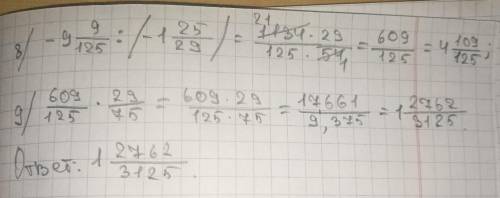 8/ -9 9/125 : (-1 25/29) = 1134 · 29 / 125 · 54 = 609/125 = 4 109/125;
21
1
9/ 609/125 · 29/75 = 609 · 29 / 125 · 75 = 17661/9,375 = 1 2762/3125
Ответ: 1 2762/3125.